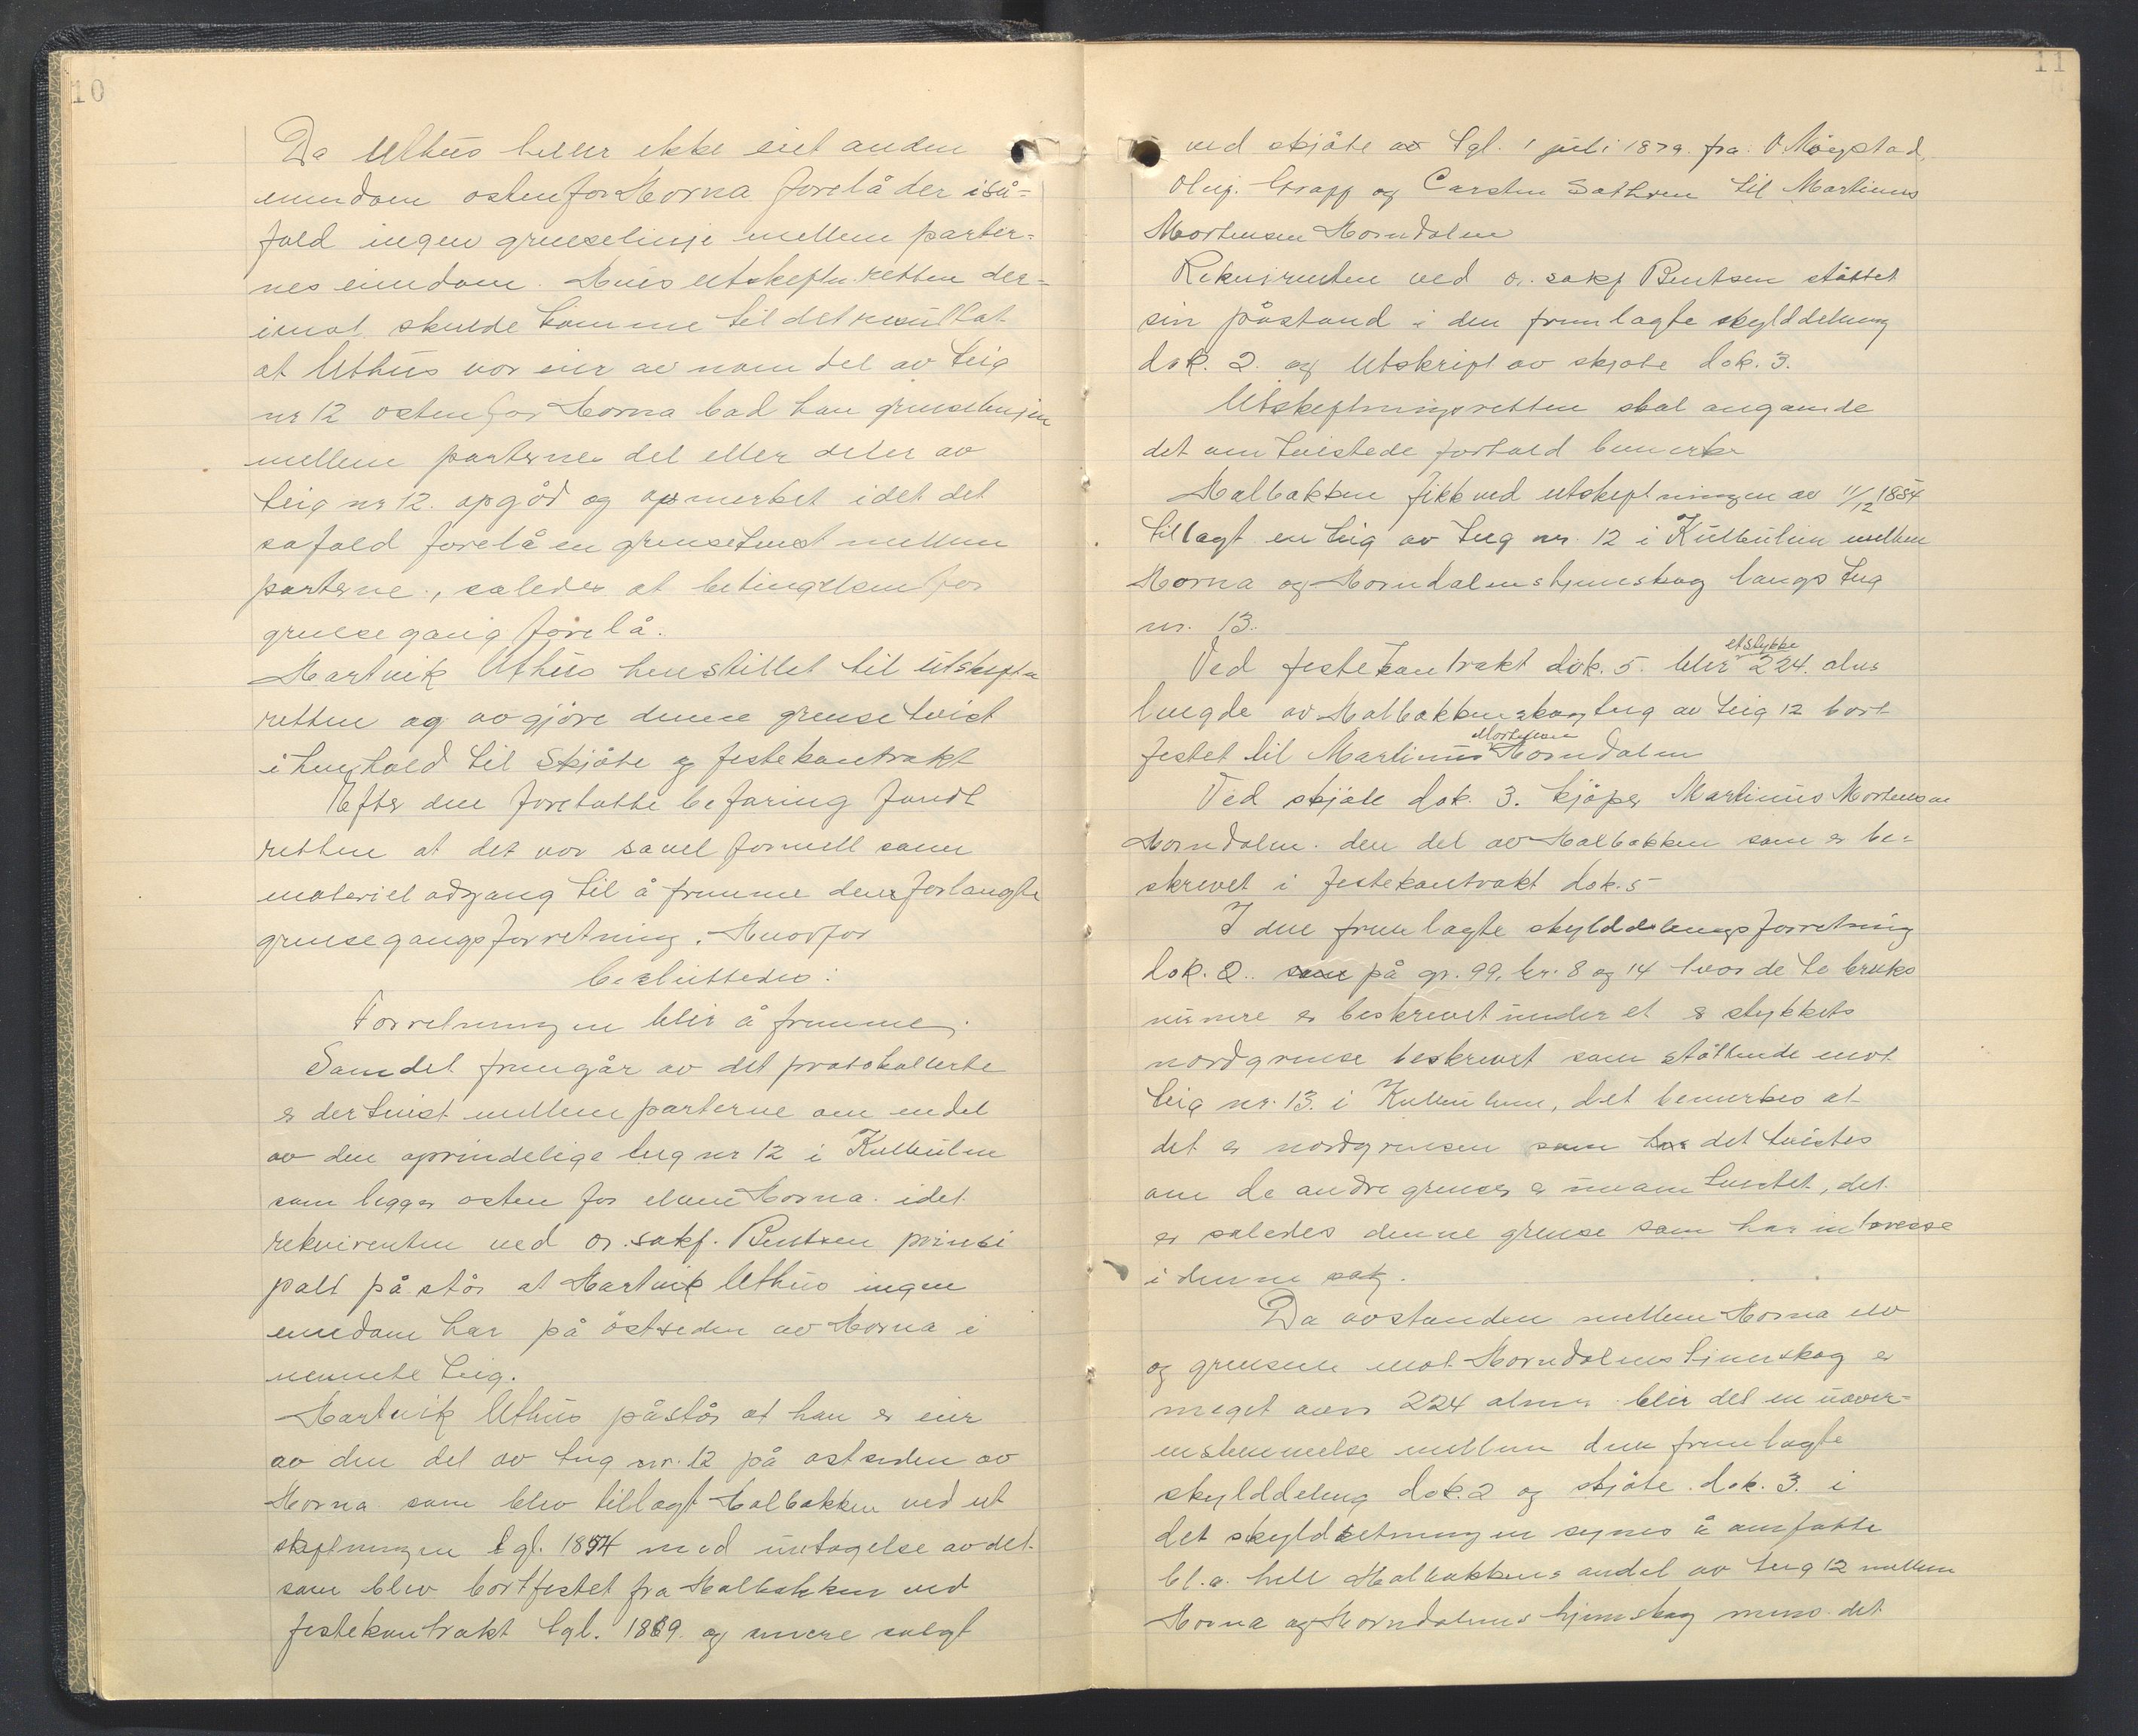 10
Da Uthus heller ikke eiet anden
eiendom østenfor Horna forelå der iså-
fald ingen grenselinje mellem parter-
nes eiendom. Hvis utskiftn.retten der-
imot skulde komme til det resultat
at Uthus var eier av noen del av teig
nr 12 østenfor Horna bad han grenselinjen
mellem parternes del eller deler av
teig nr 12. opgåd og opmerket idet det
såfald forelå en grensetvist mellem
parterne, således at betingelsen for
grensegang forelå.
Hartvik Uthus henstillet til utskiftn
retten og avgjøre denne grensetvist
i henhold til skjøte og festekontrakt
Efter den foretatte befaring fandt
retten at det var såvel formell som
materiel adgang til å fremme den forlangte
grensegangsforretning. Hvorfor
besluttedes:
Forretningen blir å fremme.
Som det fremgår av det protokollerte
er der tvist mellem parterne om en del
av den oprindelige teig nr 12 i Kulbulien
som ligger østen for elven Horna. idet
rekvirenten ved o.r.sakf. Bentsen prinsi
palt påstår at Hartvik Uthus ingen
eiendom har på østsiden av Horna i
nevnte teig.
Hartvik Uthus påstår at han er eier
av den del av teig nr. 12 på østsiden av
Horna som blev tillagt Halbakken ved ut
skiftningen tgl. 1854 med untagelse av det
som blev bortfestet fra Halbakken ved
festekontrakt tgl. 1869. og senere solgt
11
ved skjøte av tgl. 1 juli 1879. fra O Møystad,
Oluf. Grapp og Carsten Sathren til Martinus
Mortensen Horndalen
Rekvirenten ved o.r. sakf Bentsen støttet
sin påstand i den fremlagte skylddeling
dok. 2. og Utskrift av skjøte dok. 3.
Utskiftningsretten skal angående
det omtvistede forhold bemerke
Halbakken fikk ved utskiftningen av 11/12 1854
tillagt en teig av teig nr. 12 i Kulbulien mellem
Horna og Horndalens hjemskog langs teig
nr. 13.
Ved festekontrakt dok. 5. blir et stykke 224. alns
lengde av Halbakkens skogteig av teig 12 bort
festet til Martinus Mortensen Horndalen
Ved skjøte dok. 3. kjøper Martinus Mortensen
Horndalen. den del av Halbakken som er be-
skrevet i festekontrakt dok. 5
I den fremlagte skylddelingsforretning
dok. 2.. på gr. 99. br. 8 og 14 hvor de to bruks
numre er beskrevet under et er stykkets
nordgrense beskrevet som støttende mot
teig nr. 13. i Kulbulien, det bemerkes at
det er nordgrensen som det tvistes
om de andre grenser er uomtvistet, det
er således denne grense som har interesse
i denne sak.
Da avstanden mellem Horna elv
og grensen mot Horndalens hjemskog er
meget over 224 alner blir det en uover-
ensstemmelse mellem den fremlagte
skylddeling dok. 2 og skjøte dok. 3. i
det skyldsetningen synes å omfatte
bl.a. hele Halbakkens andel av teig 12 mellem
Horna og Horndalens hjemskog mens det